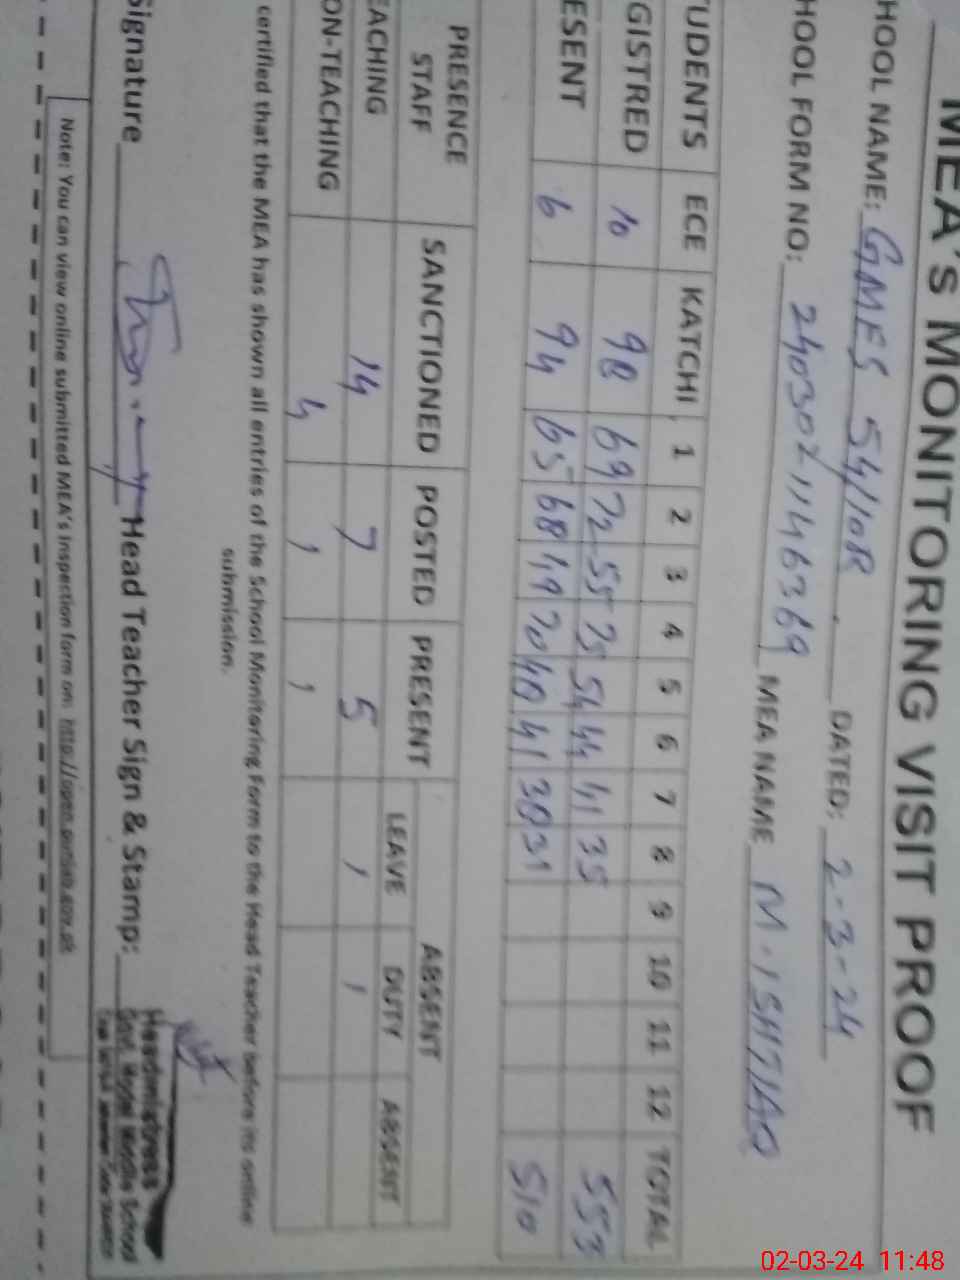 MEA's MONITORING VISIT PROOF
HOOL NAME: GMES 54/10R DATED: 2-3-24
HOOL FORM NO: 24030211146369 MEA NAME M. ISHTIAQ
TUDENTS ECE KATCHI 1 2 3 4 5 6 7 8 9 10 11 12 TOTAL
GISTRED 10 98 69 72 55 75 54 44 41 35 553
ESENT 6 94 65 68 49 70 40 41 38 31 510
PRESENCE STAFF SANCTIONED POSTED PRESENT ABSENT
LEAVE DUTY ABSENT
EACHING 14 7 5 1 1
ON-TEACHING 4 1 1
certified that the MEA has shown all entries of the School Monitoring Form to the Head Teacher before its online
submission.
Signature Head Teacher Sign & Stamp:
Headmistress
Govt. Model Middle School
Note: You can view online submitted MEA's Inspection form on: http://open.punjab.gov.pk
02-03-24 11:48